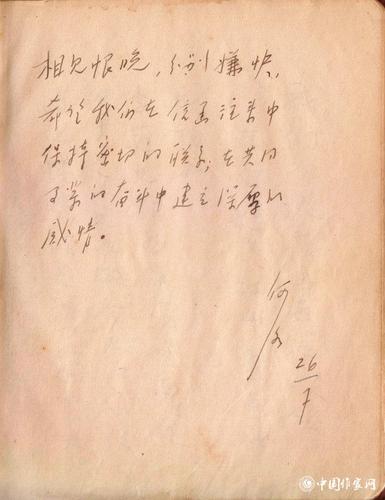 相见恨晚，分别嫌快，
希望我们在信函往来中
保持密切的联系；在共同
事业的奋斗中建立深厚的
感情。
何
26/7
中国作家网